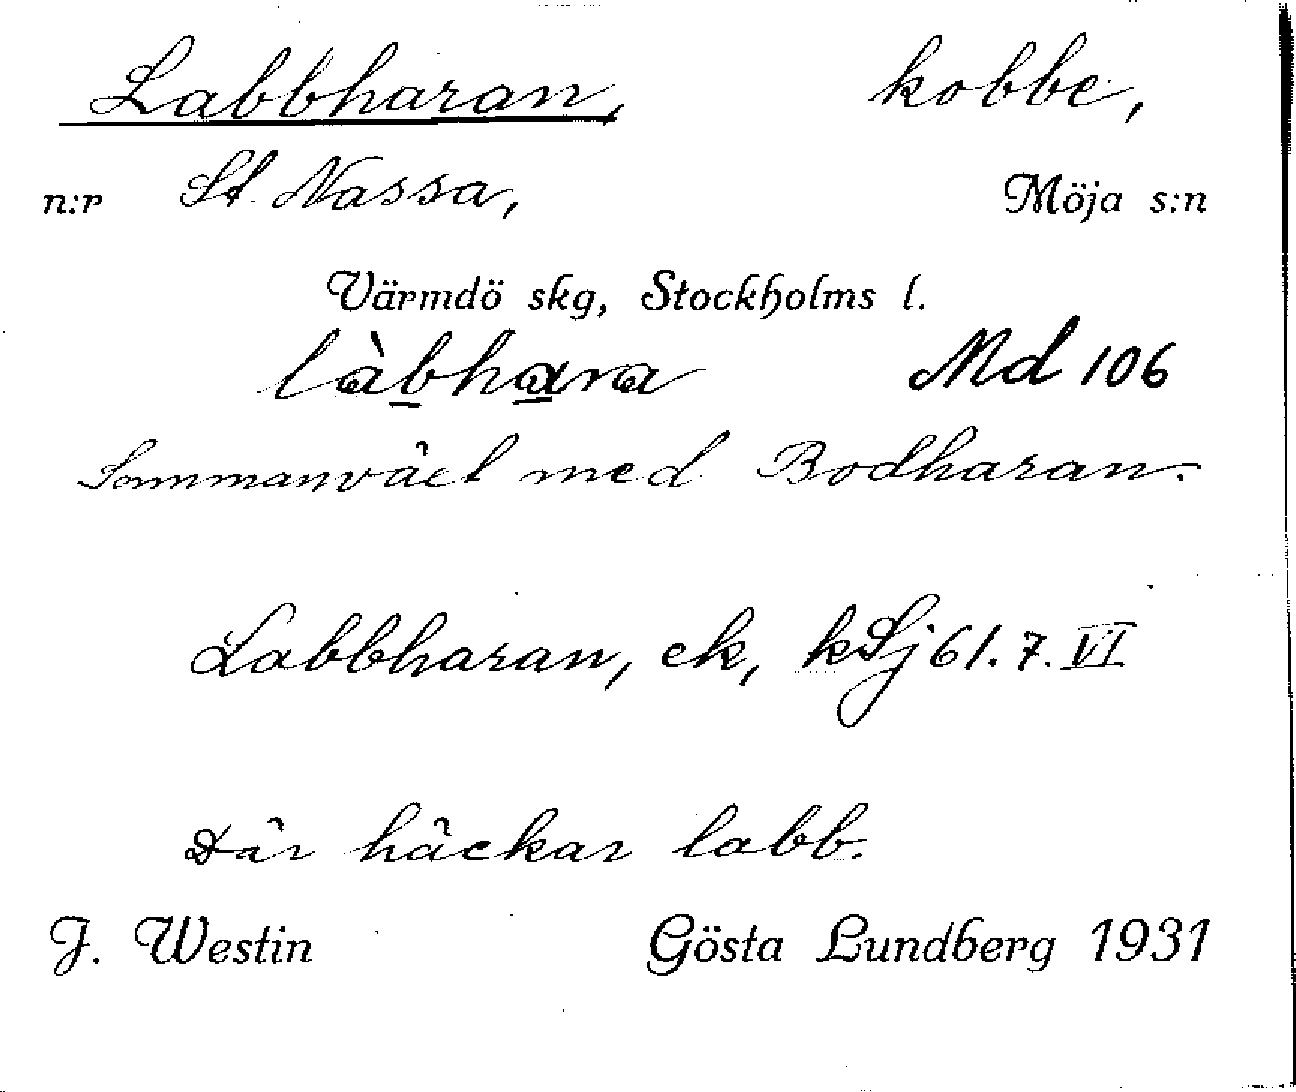 Labbharan, kobbe,
n:r St. Nassa, Möja s:n
Värmdö skg, Stockholms l.
làbhara Md 106
Sammanväxt med Bodharan.
Labbharan, ek, kSj 61. 7. VI
Där häckar labb.
J. Westin Gösta Lundberg 1931